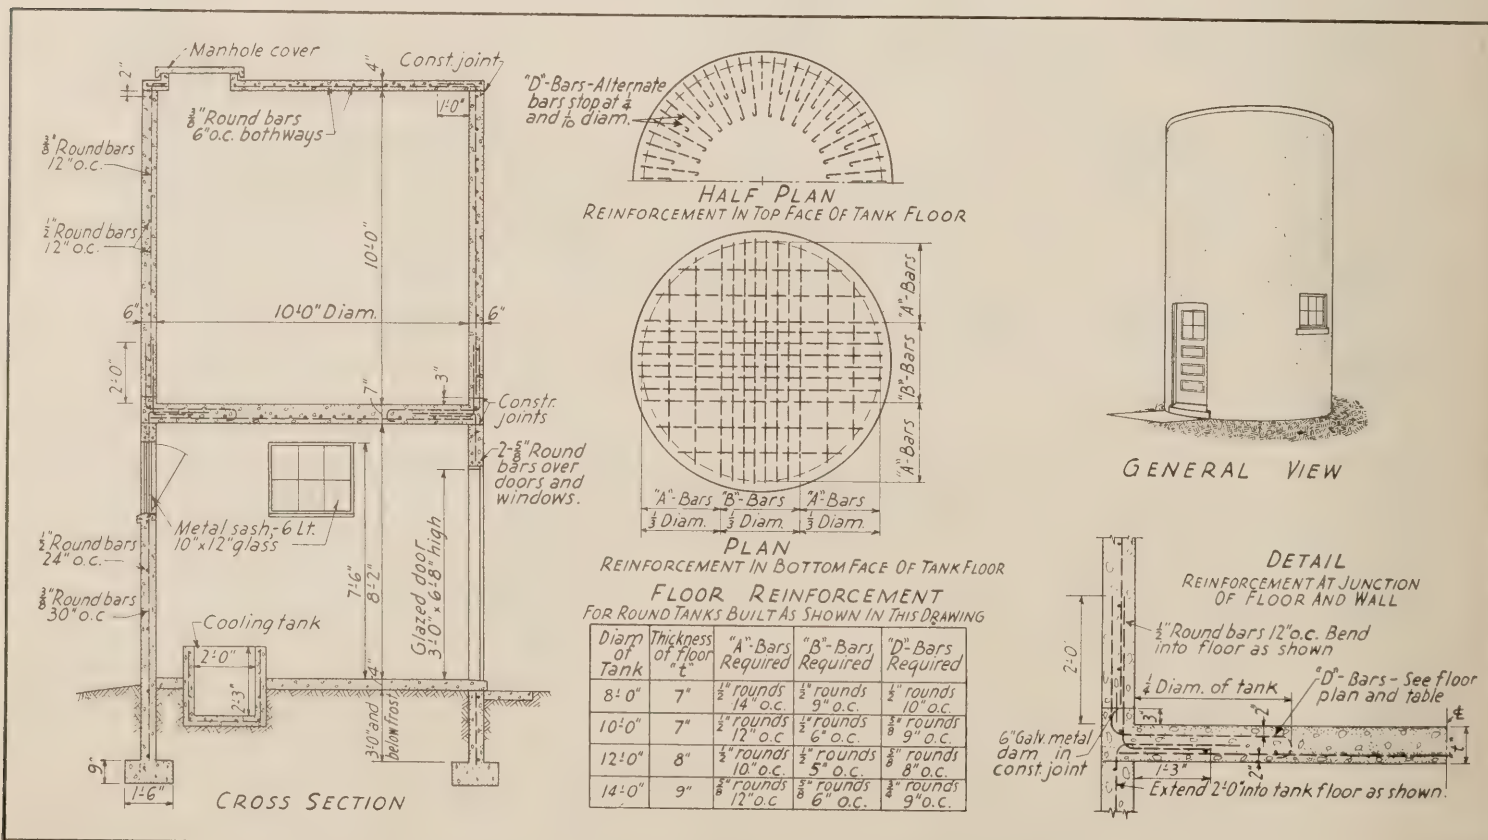 Manhole cover
2"
4"
Const. joint
1'-0"
3/8" Round bars
6" o.c. bothways
3/8" Round bars
12" o.c.
1/2" Round bars
12" o.c.
10'-0"
6"
10'-0" Diam.
6"
2'-0"
7"
3"
Constr.
joints
2-5/8" Round
bars over
doors and
windows.
Metal sash,-6 Lt.
10"x12" glass
1/2" Round bars
24" o.c.
3/8" Round bars
30" o.c
7'-6"
8'-2"
Glazed door
3'-0" x 6'-8" high
Cooling tank
2'-0"
2'-3"
4"
3'-0" and
below frost
9"
1'-6"
CROSS SECTION
"D"-Bars-Alternate
bars stop at 1/4
and 1/10 diam.
HALF PLAN
REINFORCEMENT IN TOP FACE OF TANK FLOOR
"A"-Bars
"B"-Bars
"A"-Bars
"A"-Bars "B"-Bars "A"-Bars
1/3 Diam. 1/3 Diam. 1/3 Diam.
PLAN
REINFORCEMENT IN BOTTOM FACE OF TANK FLOOR
FLOOR REINFORCEMENT
FOR ROUND TANKS BUILT AS SHOWN IN THIS DRAWING
Diam Thickness "A"-Bars "B"-Bars "D"-Bars
of of floor Required Required Required
Tank "t"
8'-0" 7" 1/2" rounds 1/2" rounds 1/2" rounds
14" o.c. 9" o.c. 10" o.c.
10'-0" 7" 1/2" rounds 1/2" rounds 5/8" rounds
12" o.c 6" o.c. 9" o.c.
12'-0" 8" 1/2" rounds 1/2" rounds 5/8" rounds
10" o.c. 5" o.c. 8" o.c.
14'-0" 9" 5/8" rounds 5/8" rounds 3/4" rounds
12" o.c 6" o.c. 9" o.c.
GENERAL VIEW
DETAIL
REINFORCEMENT AT JUNCTION
OF FLOOR AND WALL
1/2" Round bars 12" o.c. Bend
into floor as shown
2'-0"
1/4 Diam. of tank
"D"-Bars - See floor
plan and table
3"
2"
℄
"t"
6" Galv. metal
dam in
const. joint
1'-3"
2"
Extend 2'-0" into tank floor as shown.